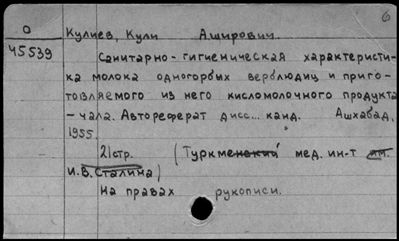 6
О
45539
Кулиев, Кули Аширович.
Санитарно-гигиеническая характеристи-
ка молока одногорбых верблюдиц и приго-
товляемого из него кисломолочного продукта
- чала. Автореферат дисс... канд. Ашхабад,
1955.
21стр. (Туркменский мед. ин-т им.
И.В. Сталина)
На правах рукописи.